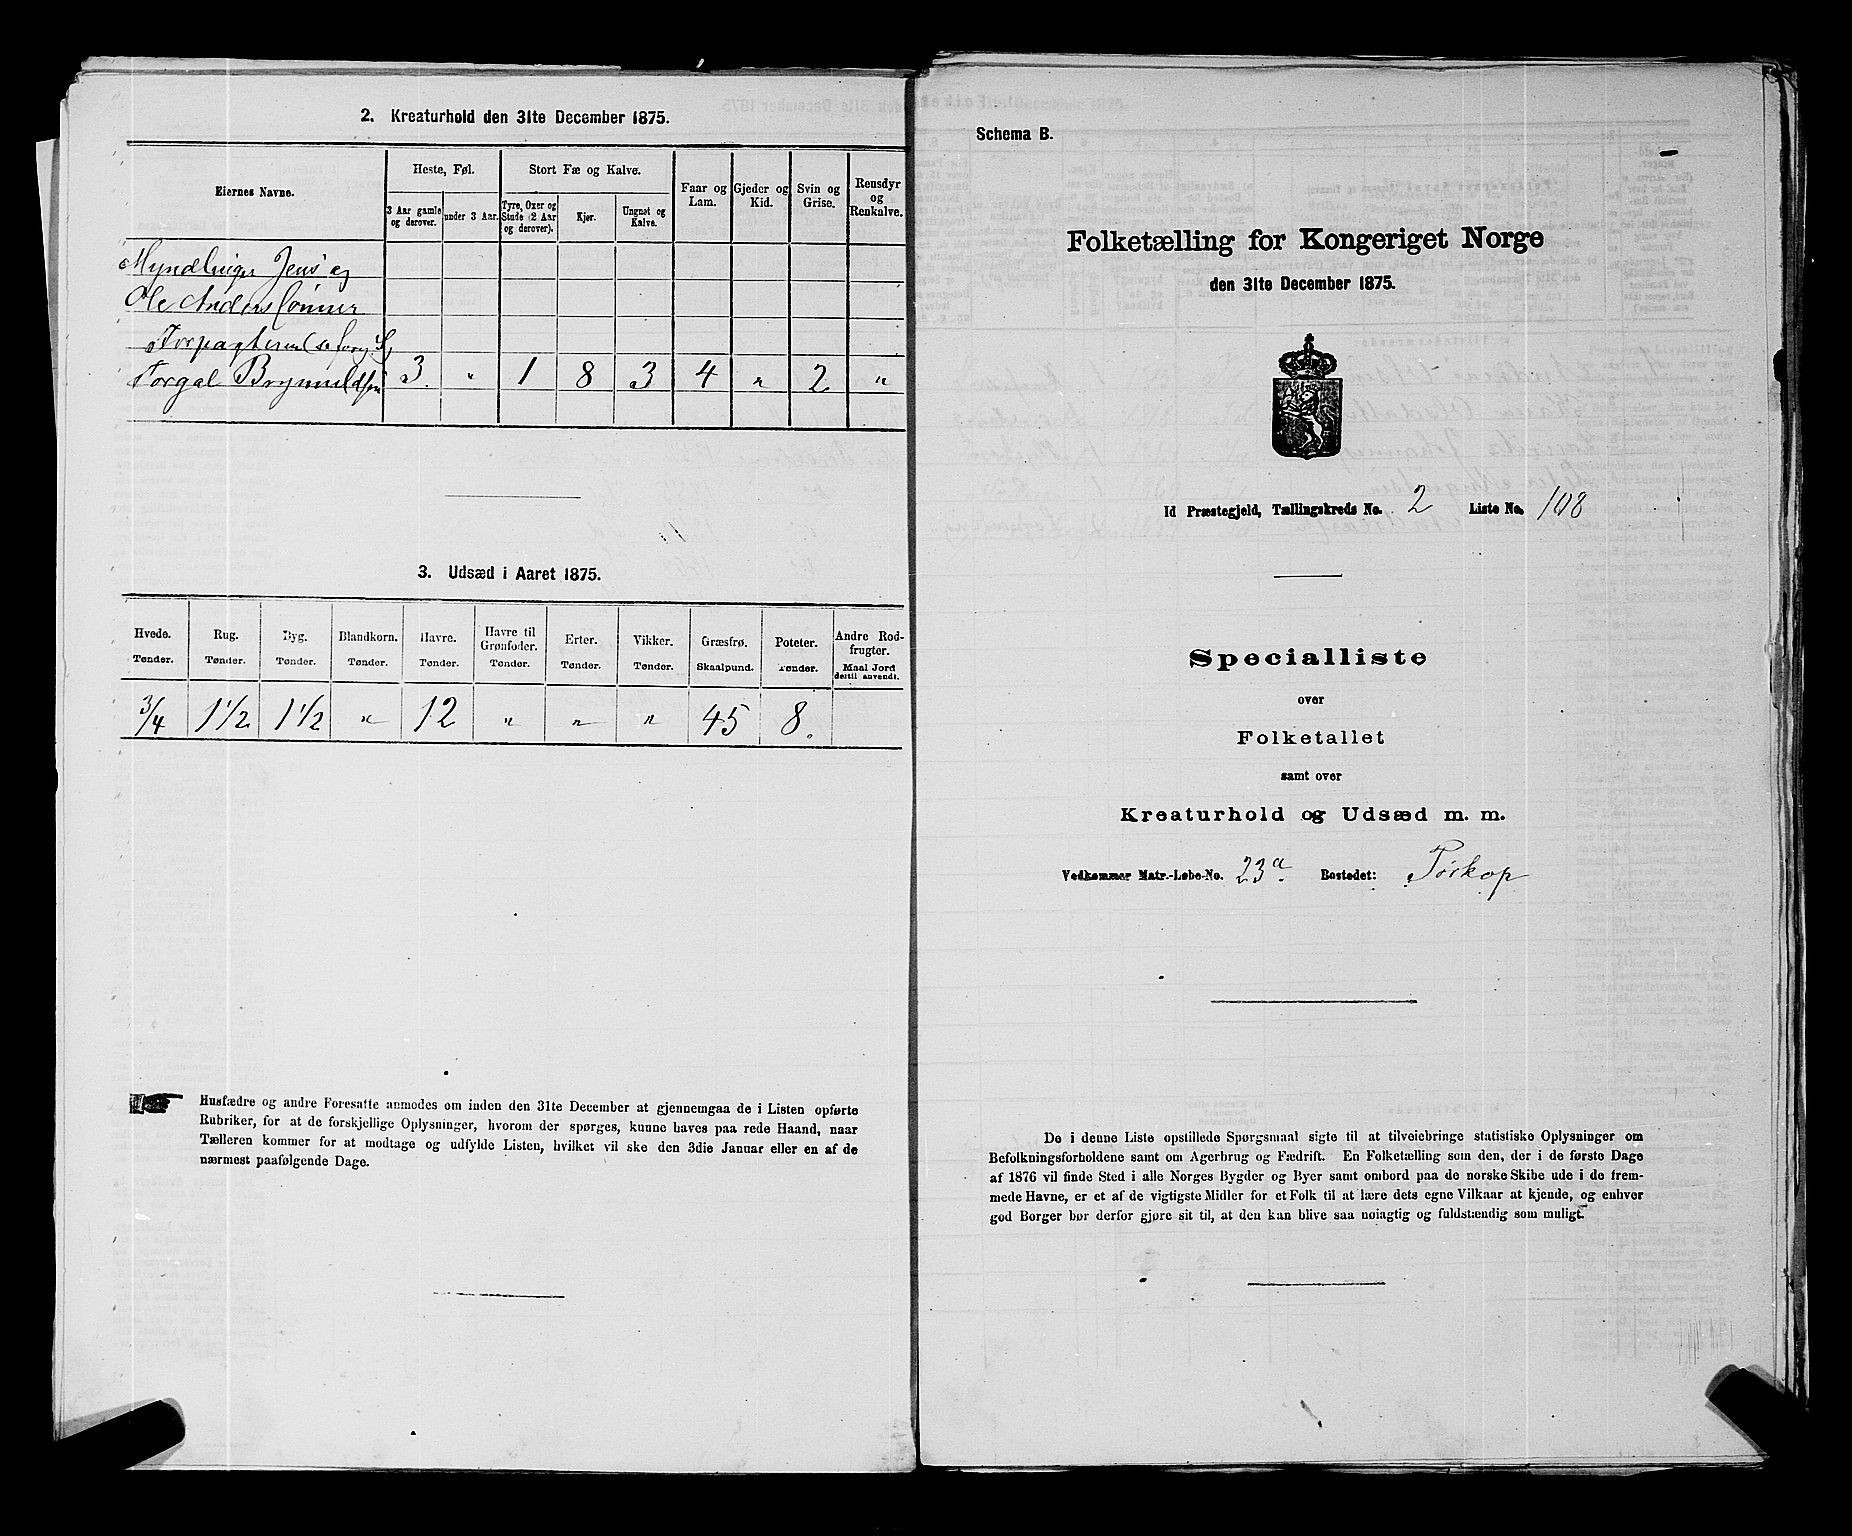 2. Kreaturhold den 31te December 1875.
Eiernes Navne.
Heste, Føl.
Stort Fæ og Kalve.
Faar og Lam.
Gjeder og Kid.
Svin og Grise.
Rensdyr og Renkalve.
3 Aar gamle og derover.
under 3 Aar.
Tyre, Oxer og Stude (2 Aar og derover).
Kjør.
Ungnøt og Kalve.
Myndlinger Jens og
Ole Anders Sønner
Forpagteren (se forrg. S)
Torgal Brynnildsen 3. " 1 8 3 4 " 2 "
3. Udsæd i Aaret 1875.
Hvede. Rug. Byg. Blandkorn. Havre. Havre til Grønfoder. Erter. Vikker. Græsfrø. Poteter. Andre Rodfrugter.
Tønder. Tønder. Tønder. Tønder. Tønder. Tønder. Tønder. Tønder. Skaalpund. Tønder. Maal Jord dertil anvendt.
3/4 1 1/2 1 1/2 " 12 " " " 45 8.
Husfædre og andre Foresatte anmodes om inden den 31te December at gjennemgaa de i Listen opførte
Rubriker, for at de forskjellige Oplysninger, hvorom der spørges, kunne haves paa rede Haand, naar
Tælleren kommer for at modtage og udfylde Listen, hvilket vil ske den 3die Januar eller en af de
nærmest paafølgende Dage.
Schema B.
Folketælling for Kongeriget Norge
den 31te December 1875.
Id Præstegjeld, Tællingskreds No. 2 Liste No. 108
Specialliste
over
Folketallet
samt over
Kreaturhold og Udsæd m. m.
Vedkommer Matr.-Løbe-No. 23a. Bostedet: Torkop
De i denne Liste opstillede Spørgsmaal sigte til at tilveiebringe statistiske Oplysninger om
Befolkningsforholdene samt om Agerbrug og Fædrift. En Folketælling som den, der i de første Dage
af 1876 vil finde Sted i alle Norges Bygder og Byer samt ombord paa de norske Skibe ude i de frem-
mede Havne, er et af de vigtigste Midler for et Folk til at lære dets egne Vilkaar at kjende, og enhver
god Borger bør derfor gjøre sit til, at den kan blive saa nøiagtig og fuldstændig som muligt.